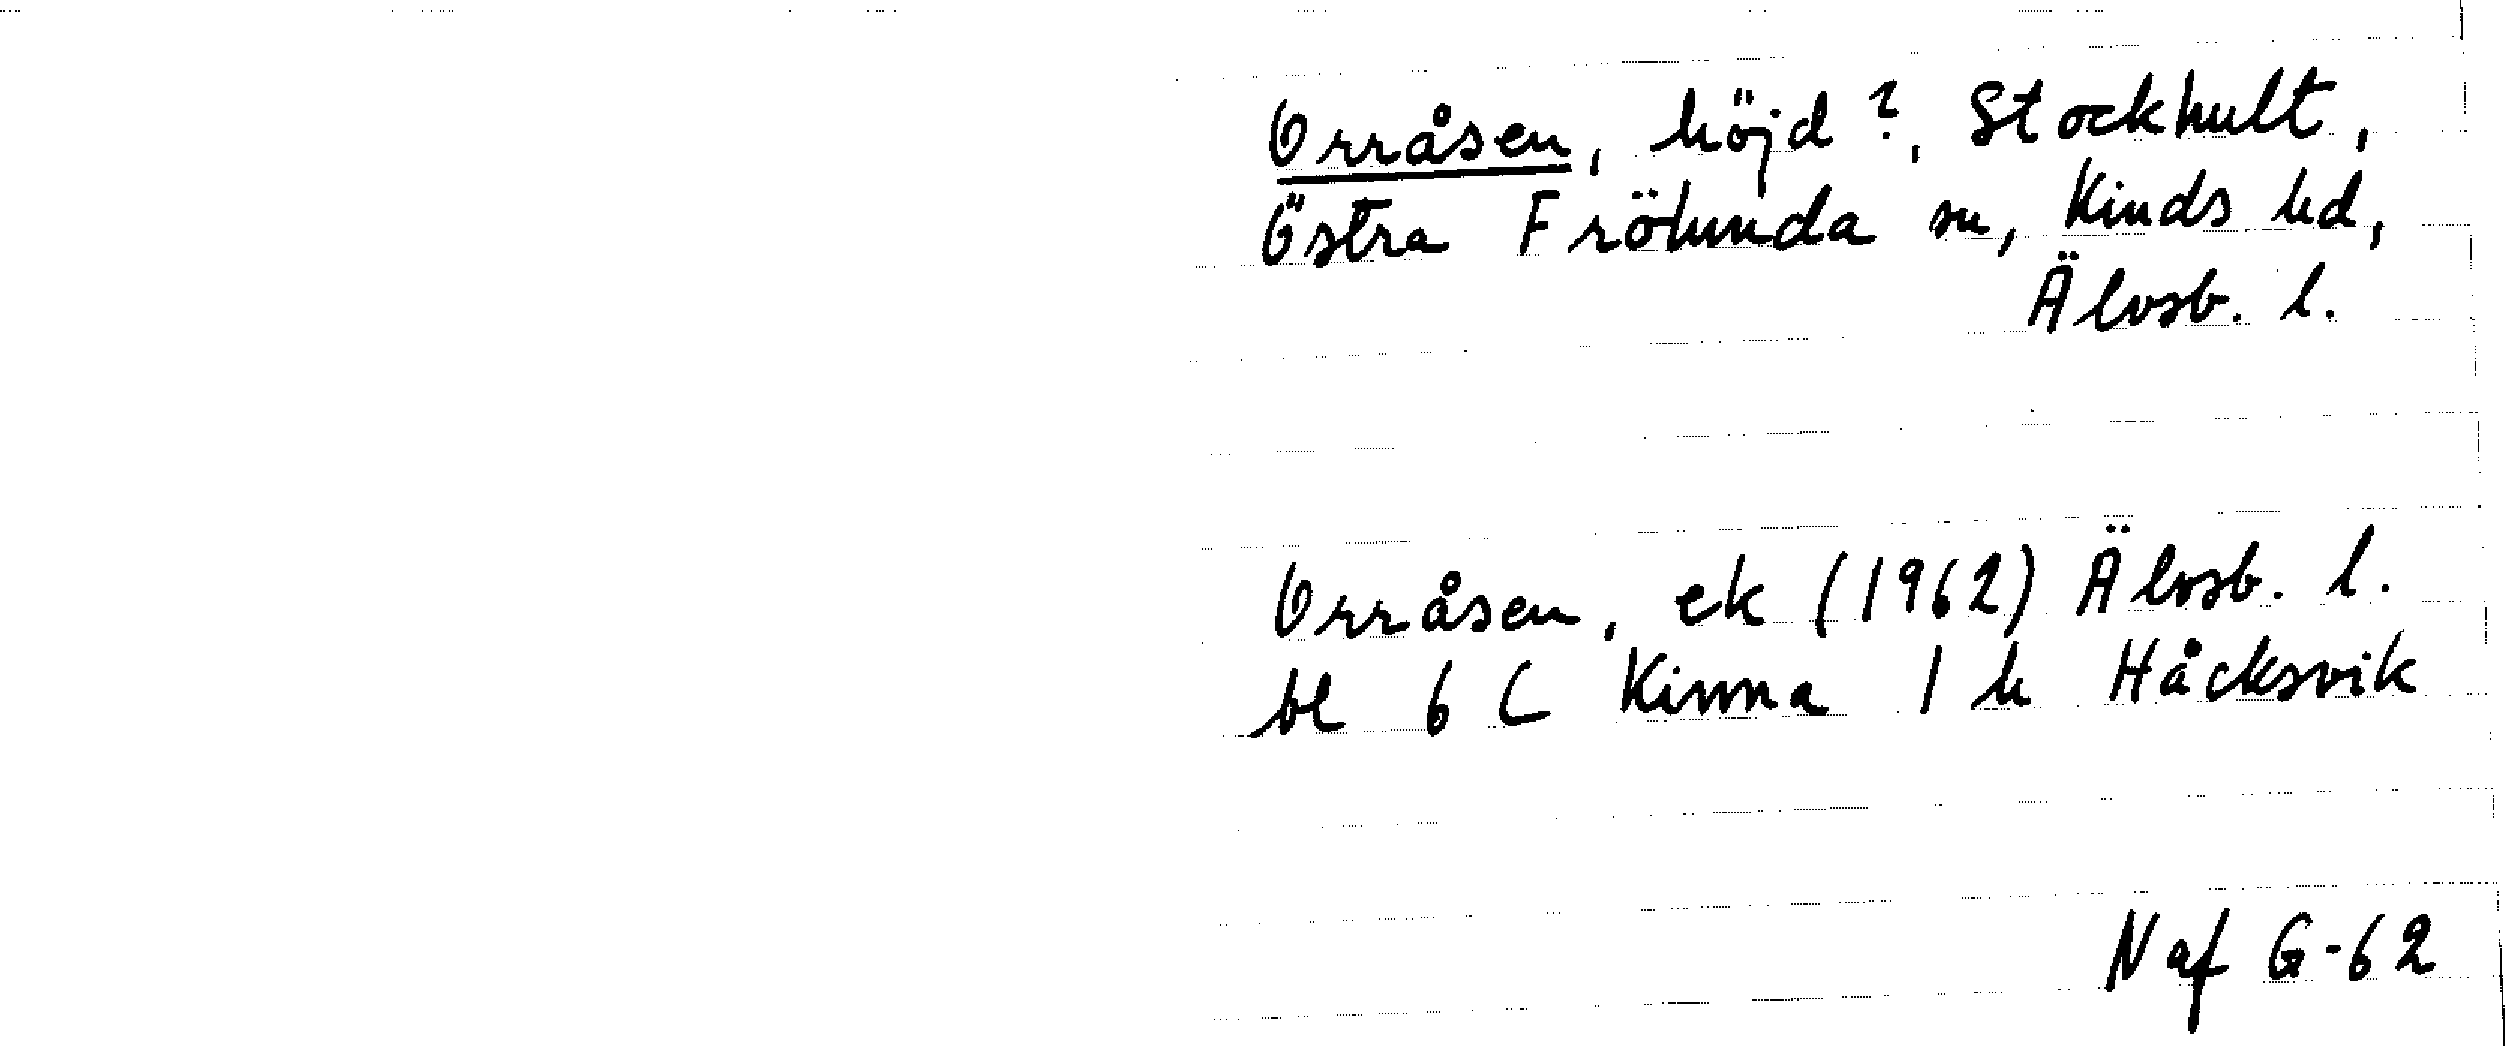 Orråsen, höjd?, Stockhult,
Östra Frölunda sn, Kinds hd,
Älvsb. l.
Orråsen, ek (1962) Älvsb. l.
bl 6 C Kinna 1 h Håcksvik
Naf G-62